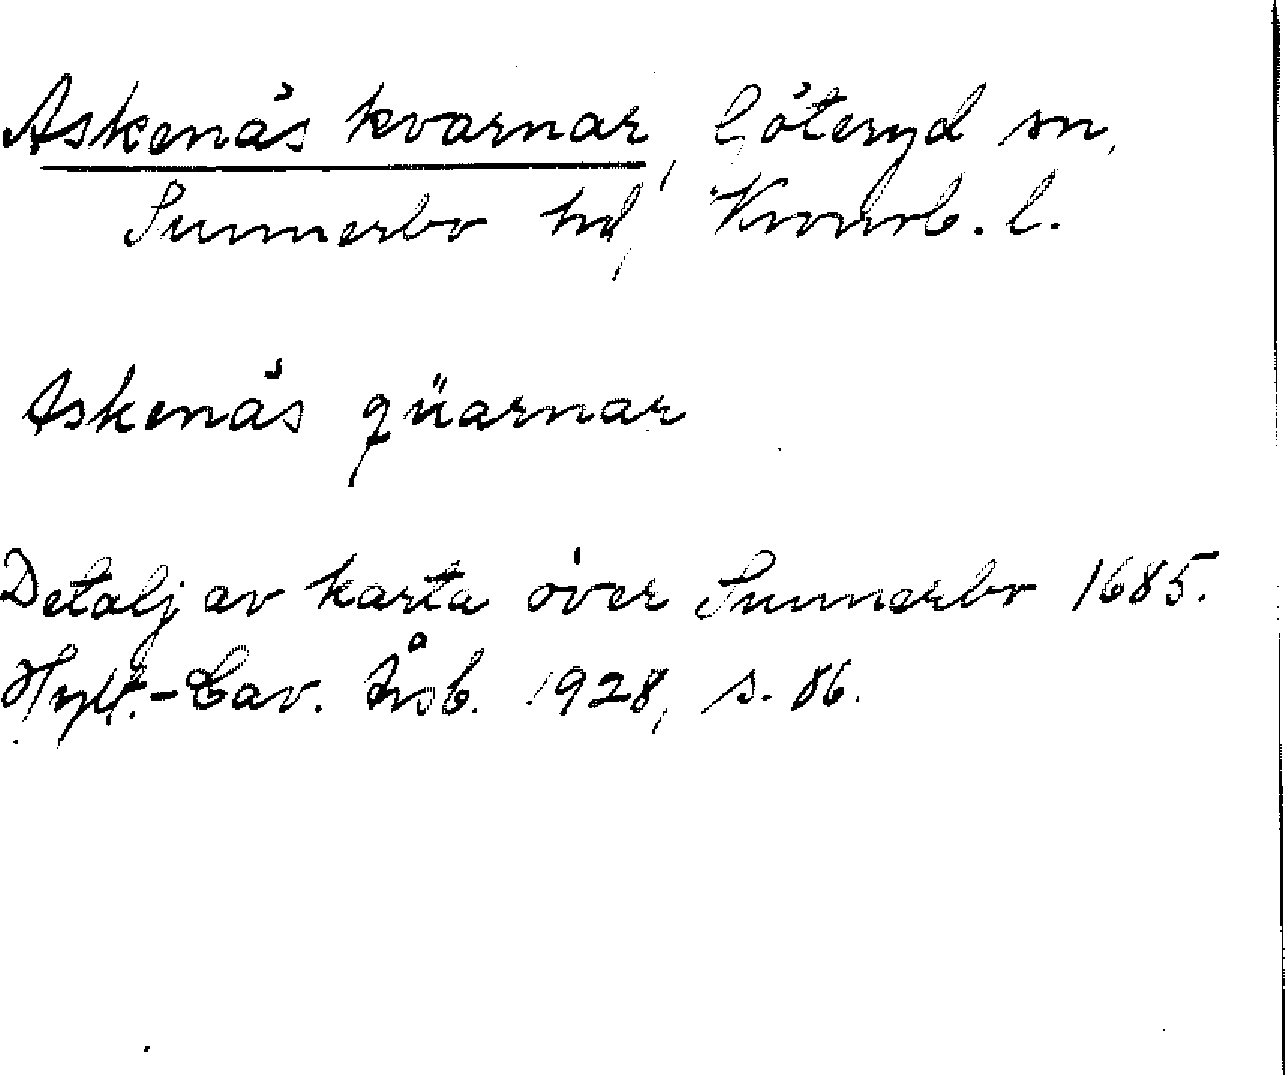 Askenäs kvarnar, Göteryd sn,
Sunnerbo hd, Kronob. l.
Askenäs qüarnar
Detalj av karta över Sunnerbo 1685.
Hylt.-Cav. Årsb. 1928, s. 86.